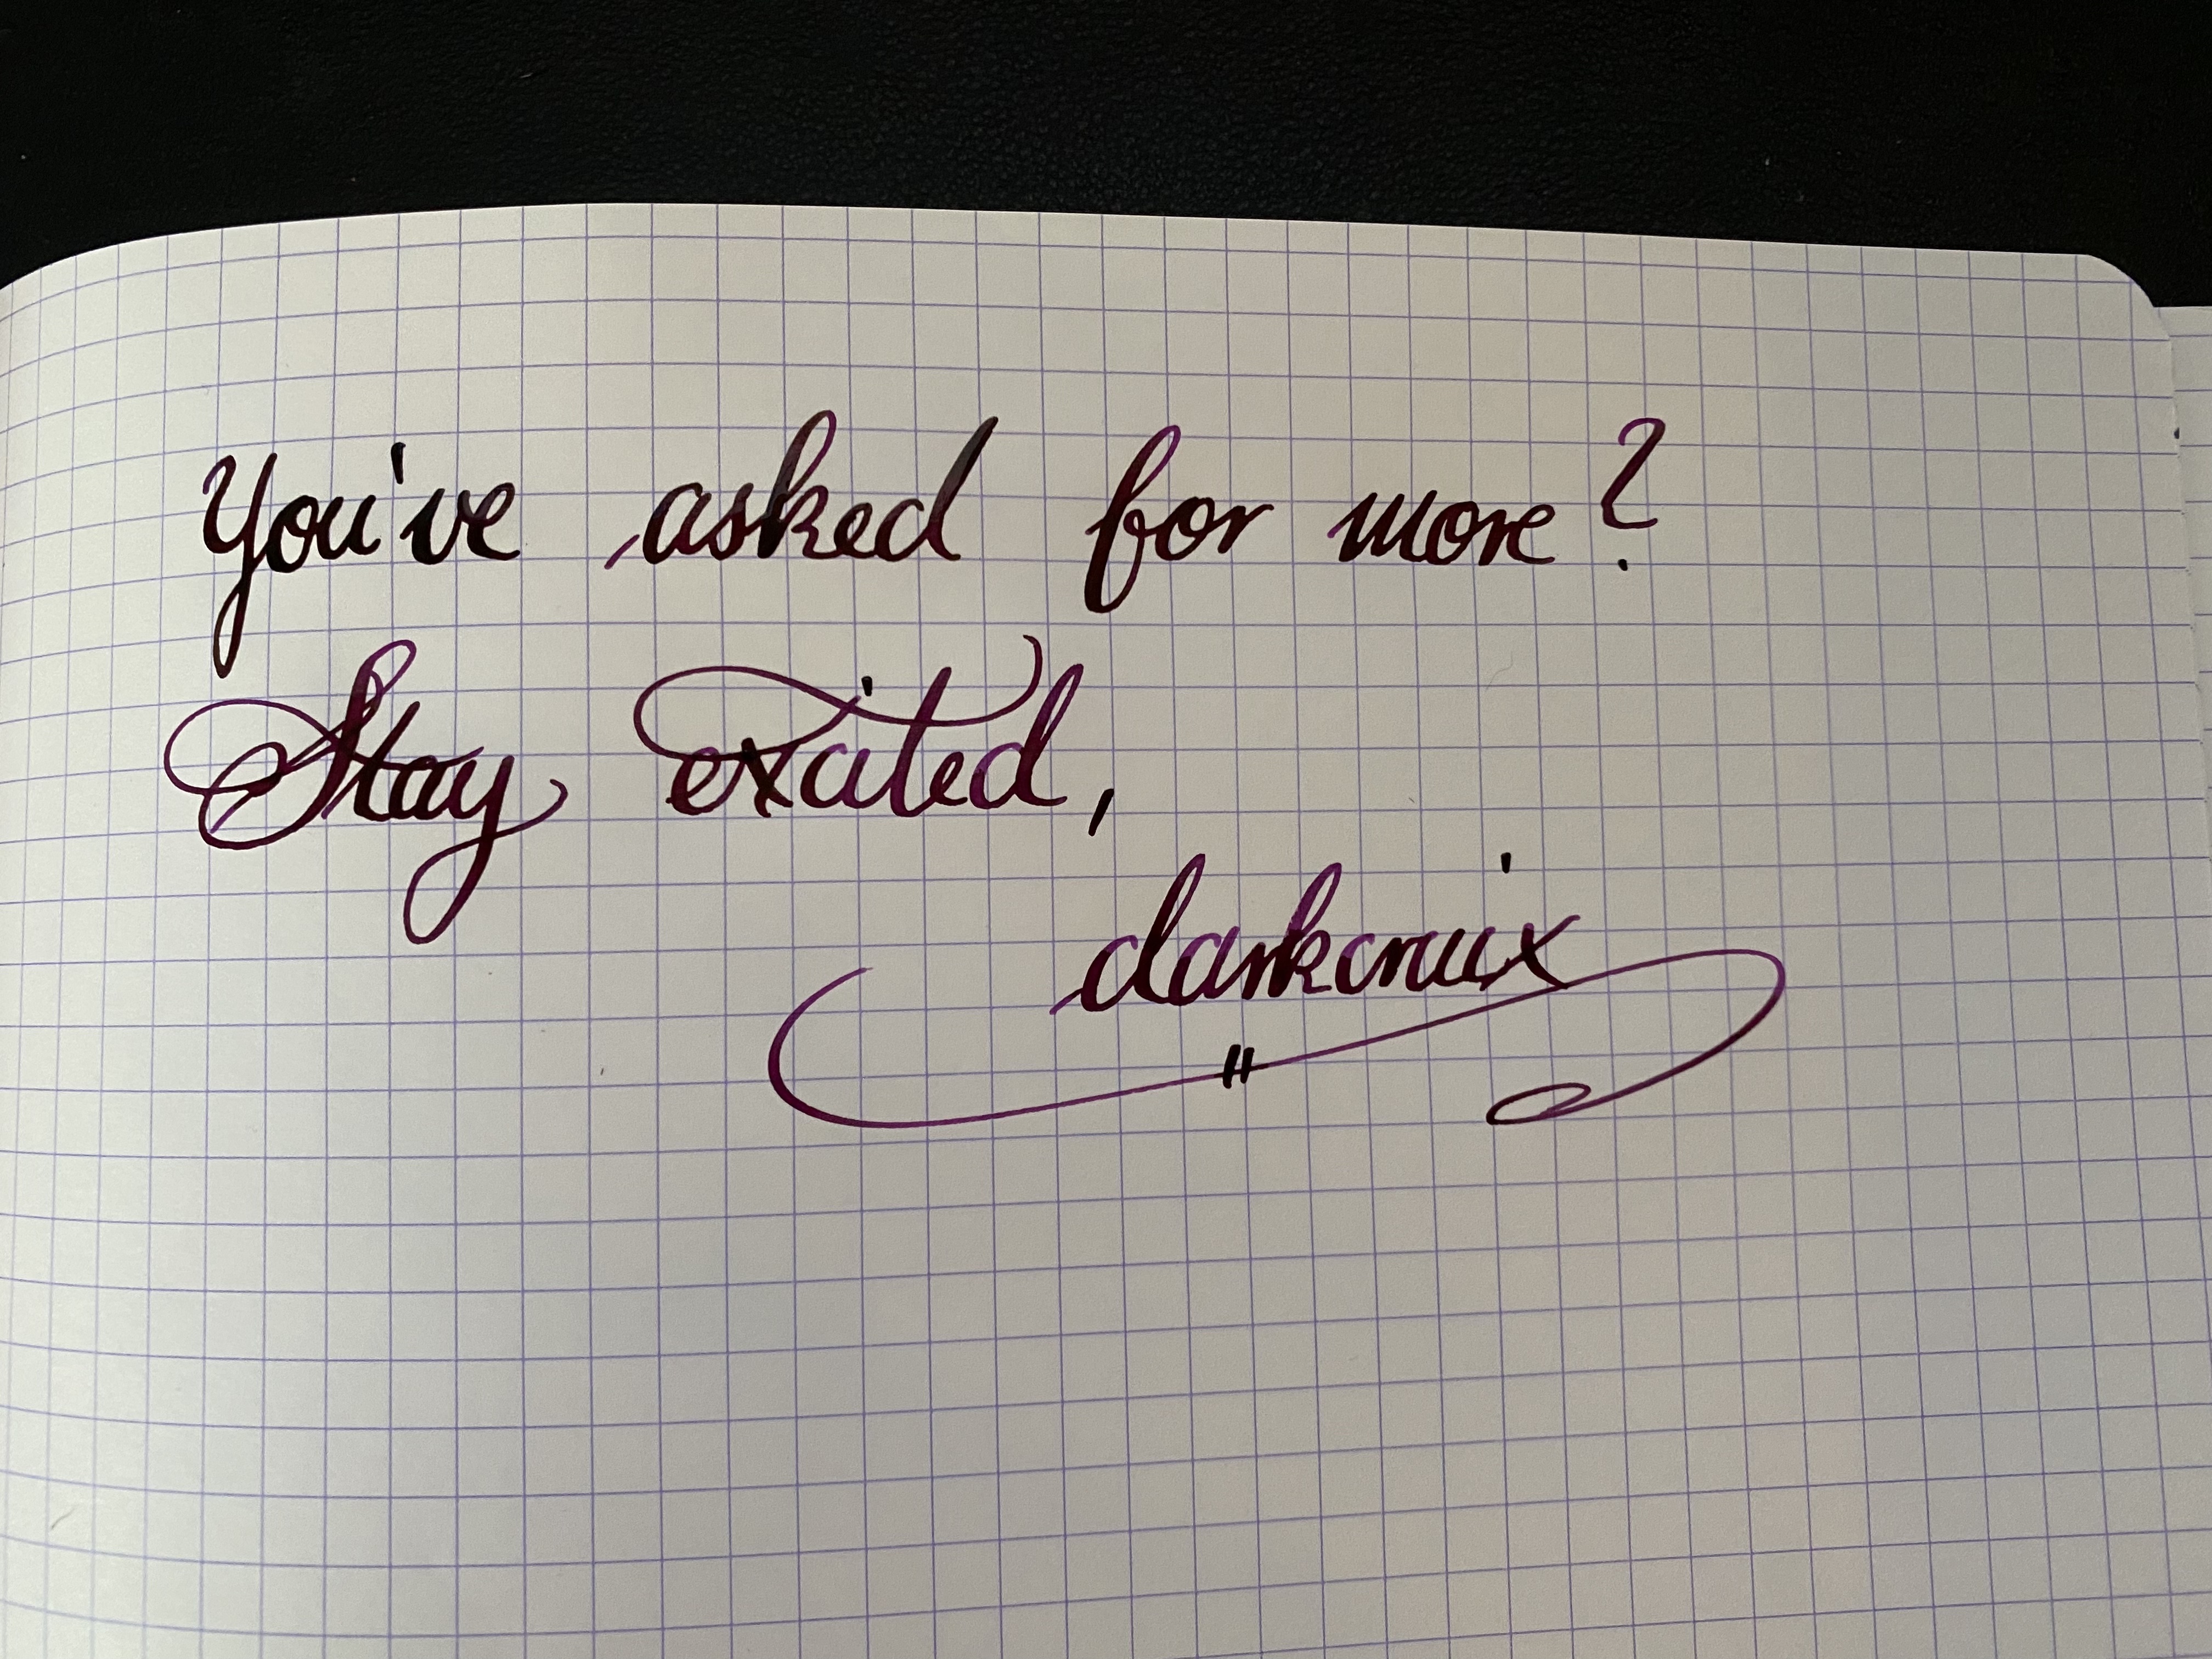 You've asked for more?
Stay excited,
darkcruix